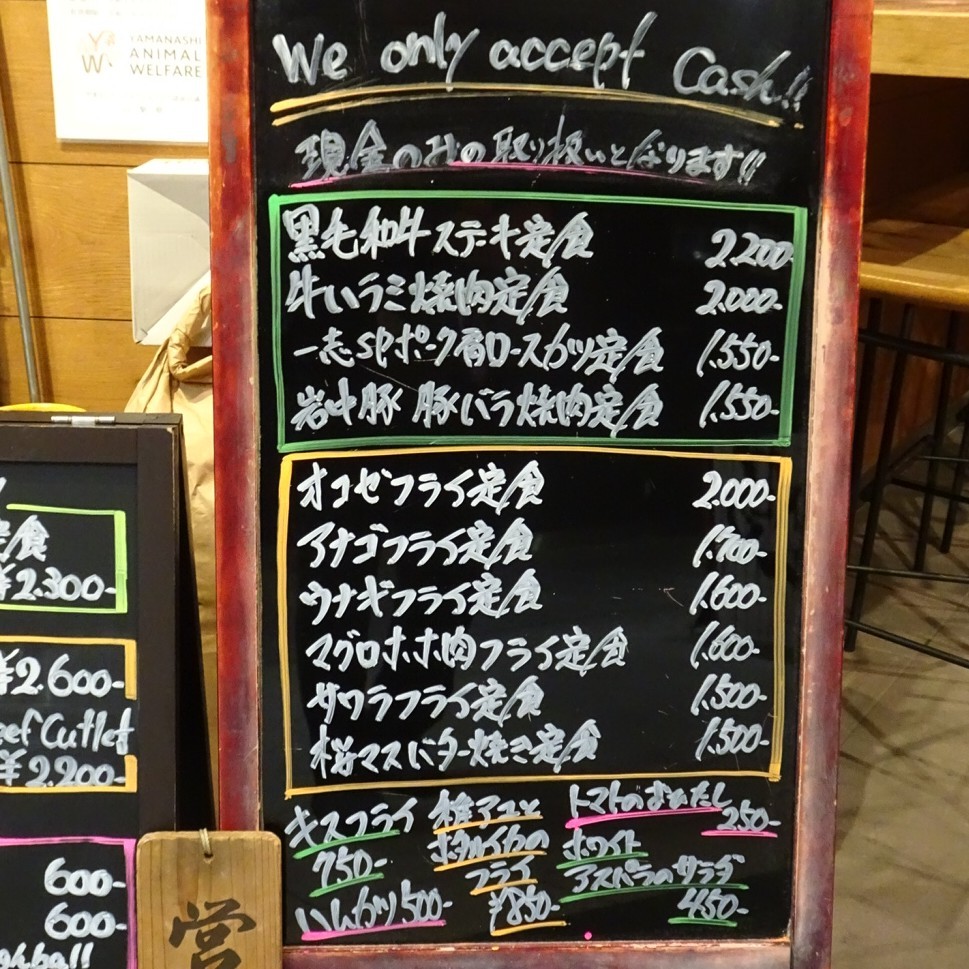 YAMANASHI
ANIMAL
WELFARE
We only accept Cash!!
現金のみの取り扱いとなります!!
黒毛和牛ステーキ定食 2.200-
牛ハラミ焼肉定食 2.000-
一志SPポーク肩ロースカツ定食 1.550-
岩中豚 豚バラ焼肉定食 1.550-
オコゼフライ定食 2.000-
アナゴフライ定食 1.700-
ウナギフライ定食 1.600-
マグロホホ肉フライ定食 1.600-
サワラフライ定食 1.500-
桜マスバター焼き定食 1.500-
キスフライ
750-
ハムカツ 500-
稚アユと
ホタルイカの
フライ
¥850-
トマトのおひたし
250-
ホワイト
アスパラのサラダ
450-
定食
¥2.300-
¥2.600-
eef Cutlet
¥2.200-
600-
600-
営